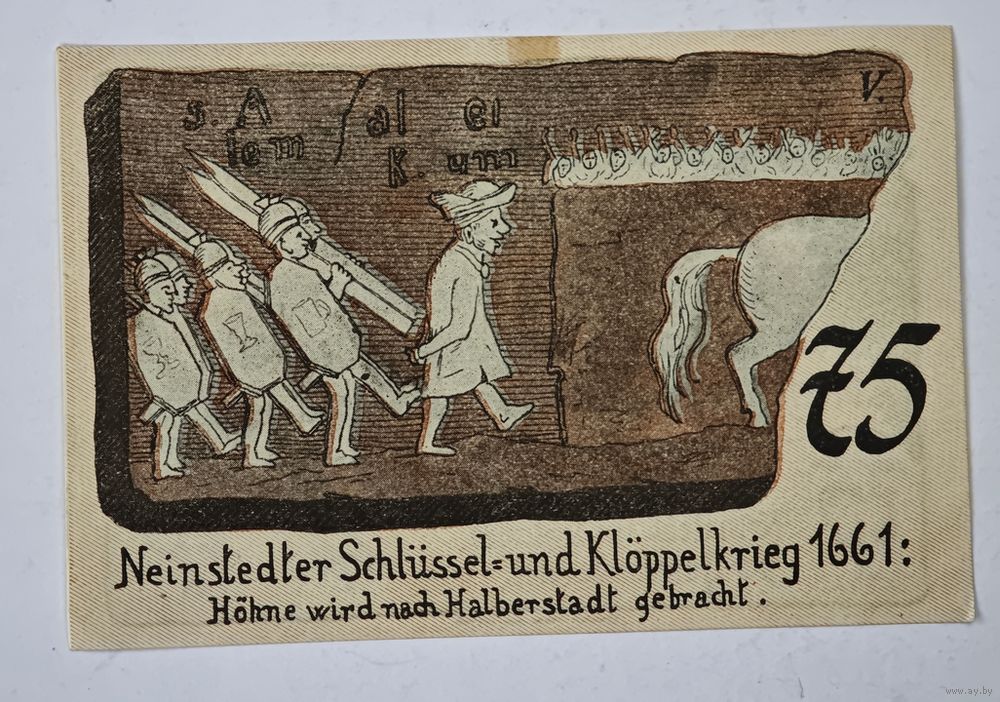 s. A al ei V.
lem K. um
75
Neinstedter Schlüssel=und Klöppelkrieg 1661:
Höhne wird nach Halberstadt gebracht.
www.ay.by